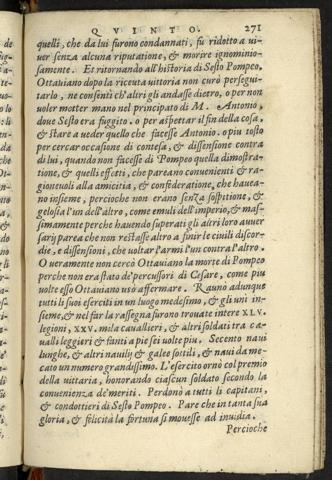 QVINTO. 271
quelli, che da lui furono condannati, fù ridotto a ui-
uer senza alcuna riputatione, & morire ignominio-
samente. Et ritornando all'historia di Sesto Pompeo,
Ottauiano dopo la riceuta uittoria non curò persegui-
tarlo, ne consentì ch'altri gli andasse dietro, o per non
uoler metter mano nel principato di M. Antonio,
doue Sesto era fuggito. o per aspettar il fin della cosa,
& stare a ueder quello che facesse Antonio. o piu tosto
per cercar occasione di contesa, & dissensione contra
di lui, quando non facesse di Pompeo quella dimostra-
tione, & quelli effetti, che pareano conuenienti & ra-
gioneuoli alla amicitia, & confideratione, che hauea-
no insieme, percioche non erano senza sospitione, &
gelosia l'un dell'altro, come emuli dell'imperio, & mas
simamente perche hauendo superati gli altri loro auuer
sarij parea che non restasse altro a finir le ciuili discor-
die, e dissensioni, che uoltar l'armi l'un contra l'altro.
O ueramente non cercò Ottauiano la morte di Pompeo
perche non era stato de' percussori di Cesare, come piu
uolte esso Ottauiano usò affermare. Raunò adunque
tutti li suoi eserciti in un luogo medesimo, & gli unì in-
sieme, & nel far la rassegna furono trouate intere XLV.
legioni, XXV. mila cauallieri, & altri soldati tra ca-
ualli leggieri & fanti a piè sei uolte piu. Secento naui
lunghe, & altri nauilij & galee sottili, & naui da me-
cato un numero grandissimo. L'esercito ornò col premio
della uittaria, honorando ciascun soldato secondo la
conuenienza de' meriti. Perdonò a tutti li capitani,
& condottieri di Sesto Pompeo. Pare che in tanta sua
gloria, & felicità la fortuna si mouesse ad inuidia.
Percioche